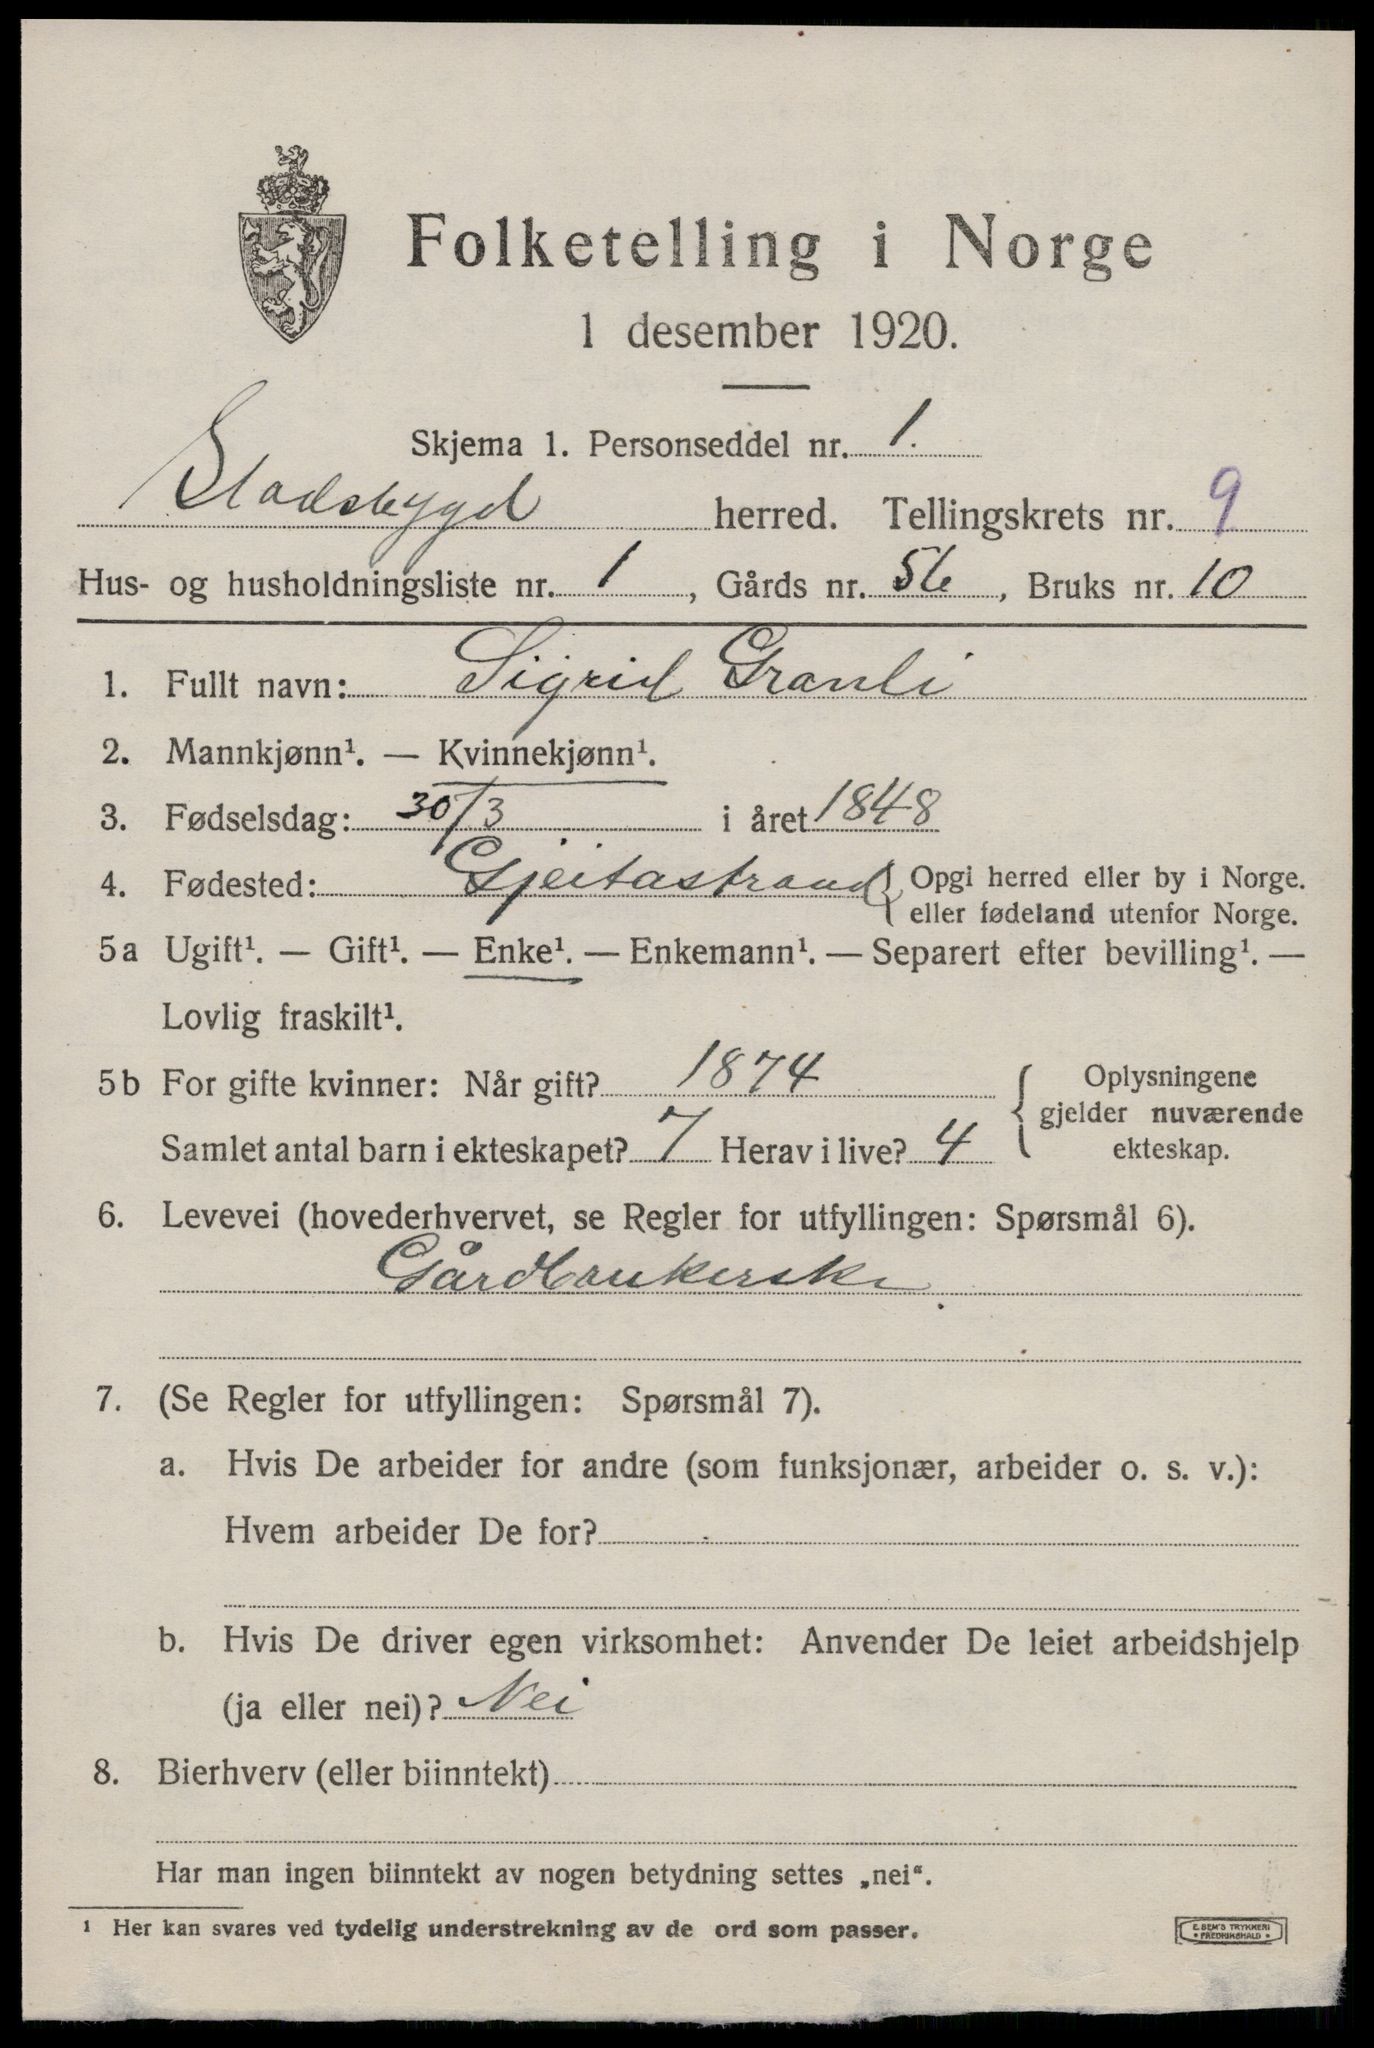 Folketelling i Norge
1 desember 1920.
Skjema 1. Personseddel nr. 1.
Stadsbygd herred. Tellingskrets nr. 9
Hus- og husholdningsliste nr. 1, Gårds nr. 56, Bruks nr. 10
1. Fullt navn: Sigrid Granli
2. Mannkjønn¹. — Kvinnekjønn¹.
3. Fødselsdag: 30/3 i året 1848
4. Fødested: Gjeitastrand { Opgi herred eller by i Norge.
eller fødeland utenfor Norge.
5a Ugift¹. — Gift¹. — Enke¹. — Enkemann¹. — Separert efter bevilling¹. —
Lovlig fraskilt¹.
5b For gifte kvinner: Når gift? 1874 { Oplysningene
gjelder nuværende
Samlet antal barn i ekteskapet? 7 Herav i live? 4 ekteskap.
6. Levevei (hovederhvervet, se Regler for utfyllingen: Spørsmål 6).
Gårdbrukerske
7. (Se Regler for utfyllingen: Spørsmål 7).
a. Hvis De arbeider for andre (som funksjonær, arbeider o. s. v.):
Hvem arbeider De for?
b. Hvis De driver egen virksomhet: Anvender De leiet arbeidshjelp
(ja eller nei)? Nei
8. Bierhverv (eller biinntekt)
Har man ingen biinntekt av nogen betydning settes „nei“.
¹ Her kan svares ved tydelig understrekning av de ord som passer.
E. SEM'S TRYKKERI
• FREDRIKSHALD •